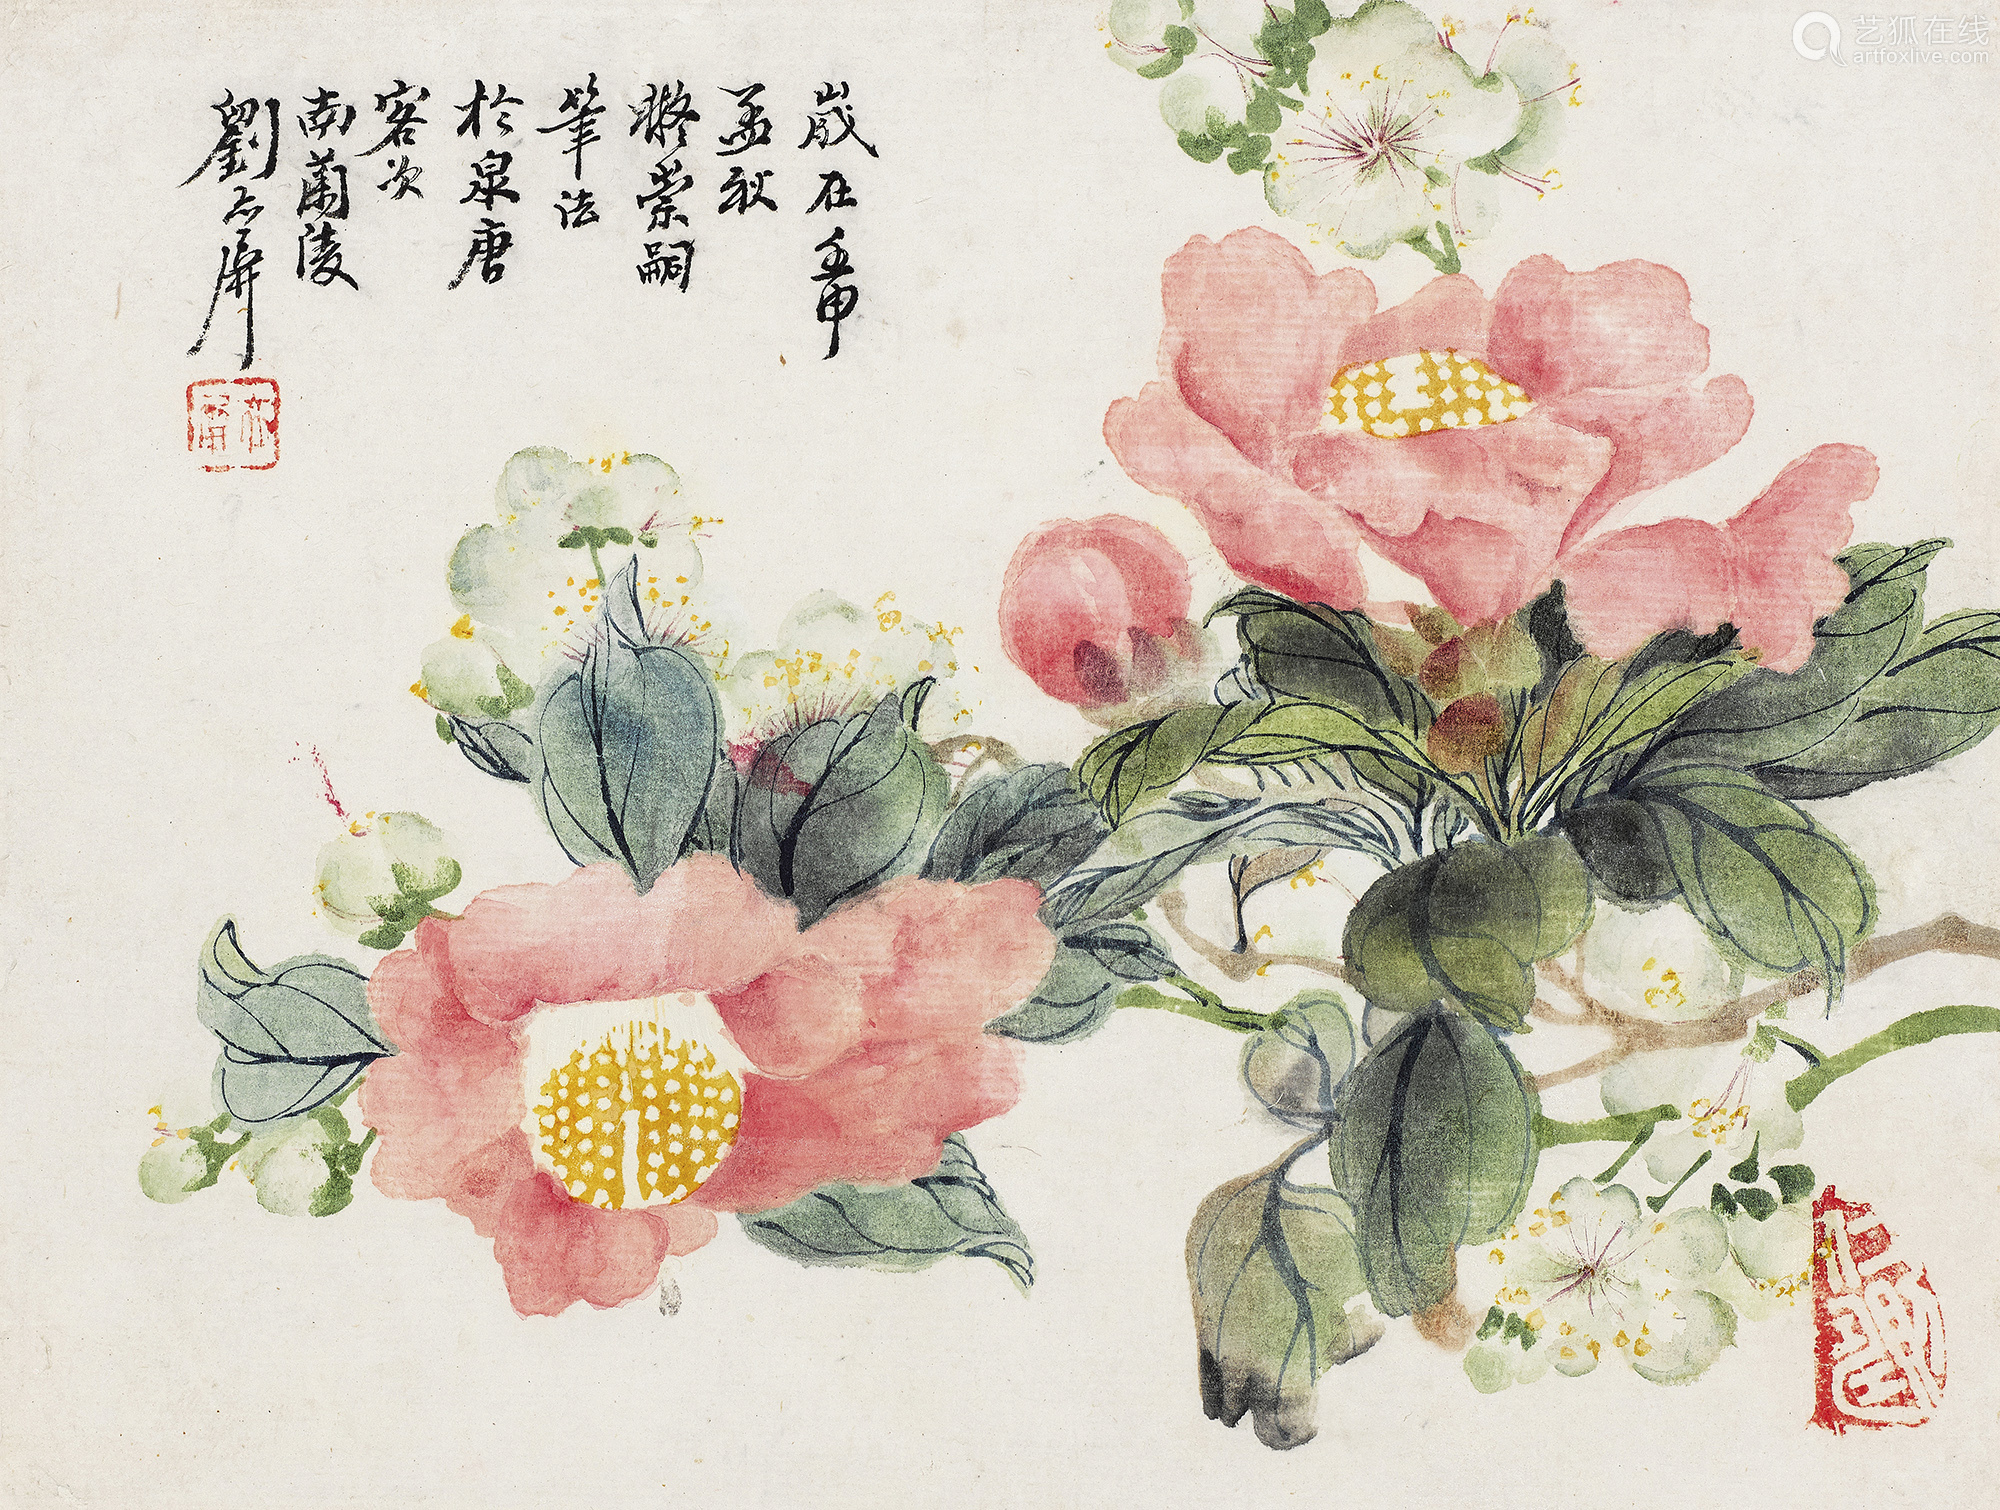 歲在壬申
孟秋
睠崇嗣
筆法
於泉唐
客次
南蘭陵
劉志屏
艺狐在线
artfoxlive.com